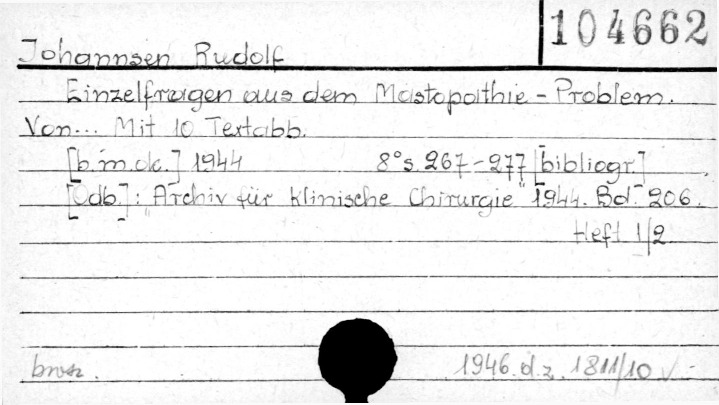 104662
Johannsen Rudolf
Einzelfragen aus dem Mastopathie-Problem.
Von... Mit 10 Textabb.
[b.m.dr.] 1944 8°s. 267-277 [bibliogr.]
[Odb.]: "Archiv für klinische Chirurgie" 1944. Bd. 206.
Heft 1/2
brosz. 1946.d.z. 1811/10 v